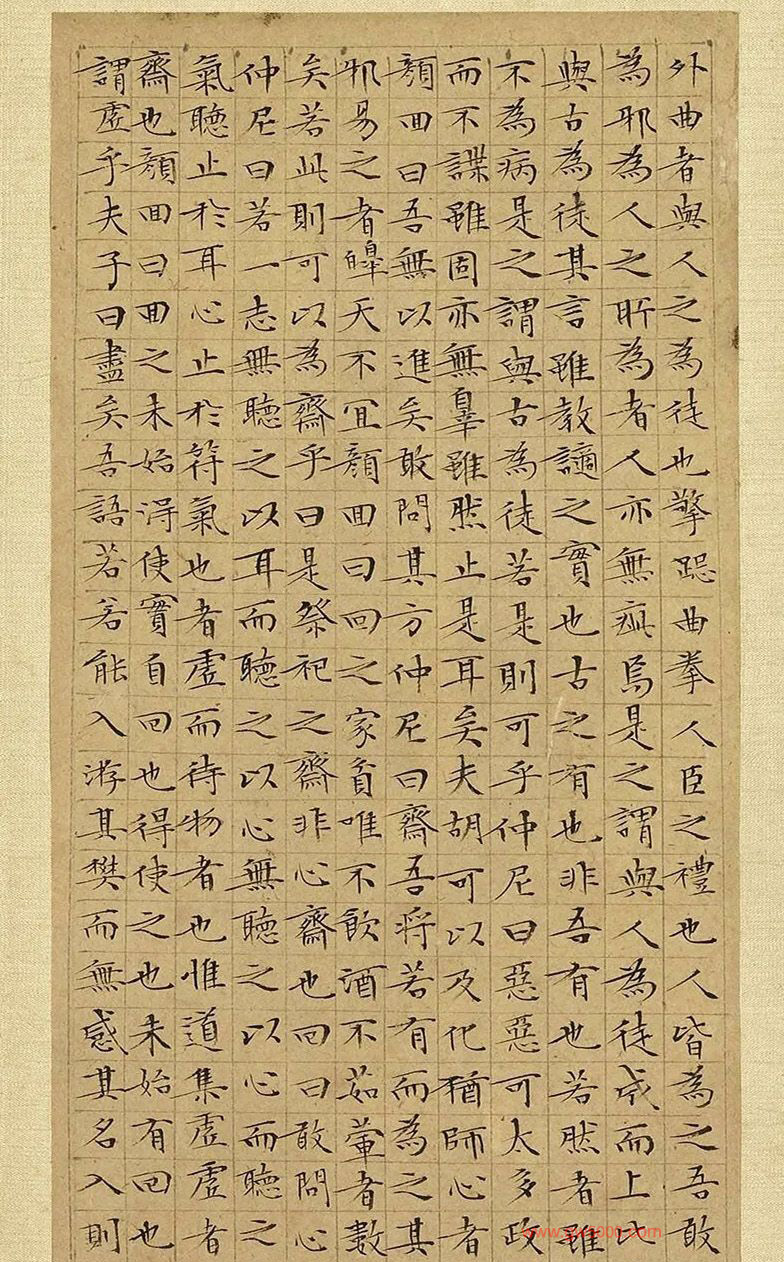 外曲者與人之為徒也擎跽曲拳人臣之禮也人皆為之吾敢
為邪為人之所為者人亦無疵焉是之謂與人為徒成而上比
與古為徒其言雖教讁之實也古之有也非吾有也若然者雖
不為病是之謂與古為徒若是則可乎仲尼曰惡惡可太多政
而不諜雖固亦無辠雖然止是耳矣夫胡可以及化猶師心者
顏回曰吾無以進矣敢問其方仲尼曰齋吾將若有而為之其
邪易之者皞天不宜顏回曰回之家貧唯不飲酒不茹葷者數
矣若此則可以為齋乎曰是祭祀之齋非心齋也回曰敢問心
仲尼曰若一志無聽之以耳而聽之以心無聽之以心而聽之
氣聽止於耳心止於符氣也者虛而待物者也惟道集虛虛者
齋也顏回曰回之未始得使實自回也得使之也未始有回也
謂虛乎夫子曰盡矣吾語若若能入游其樊而無感其名入則